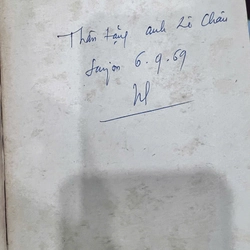 Thân tặng anh Lê Châu
Saigon 6.9.69